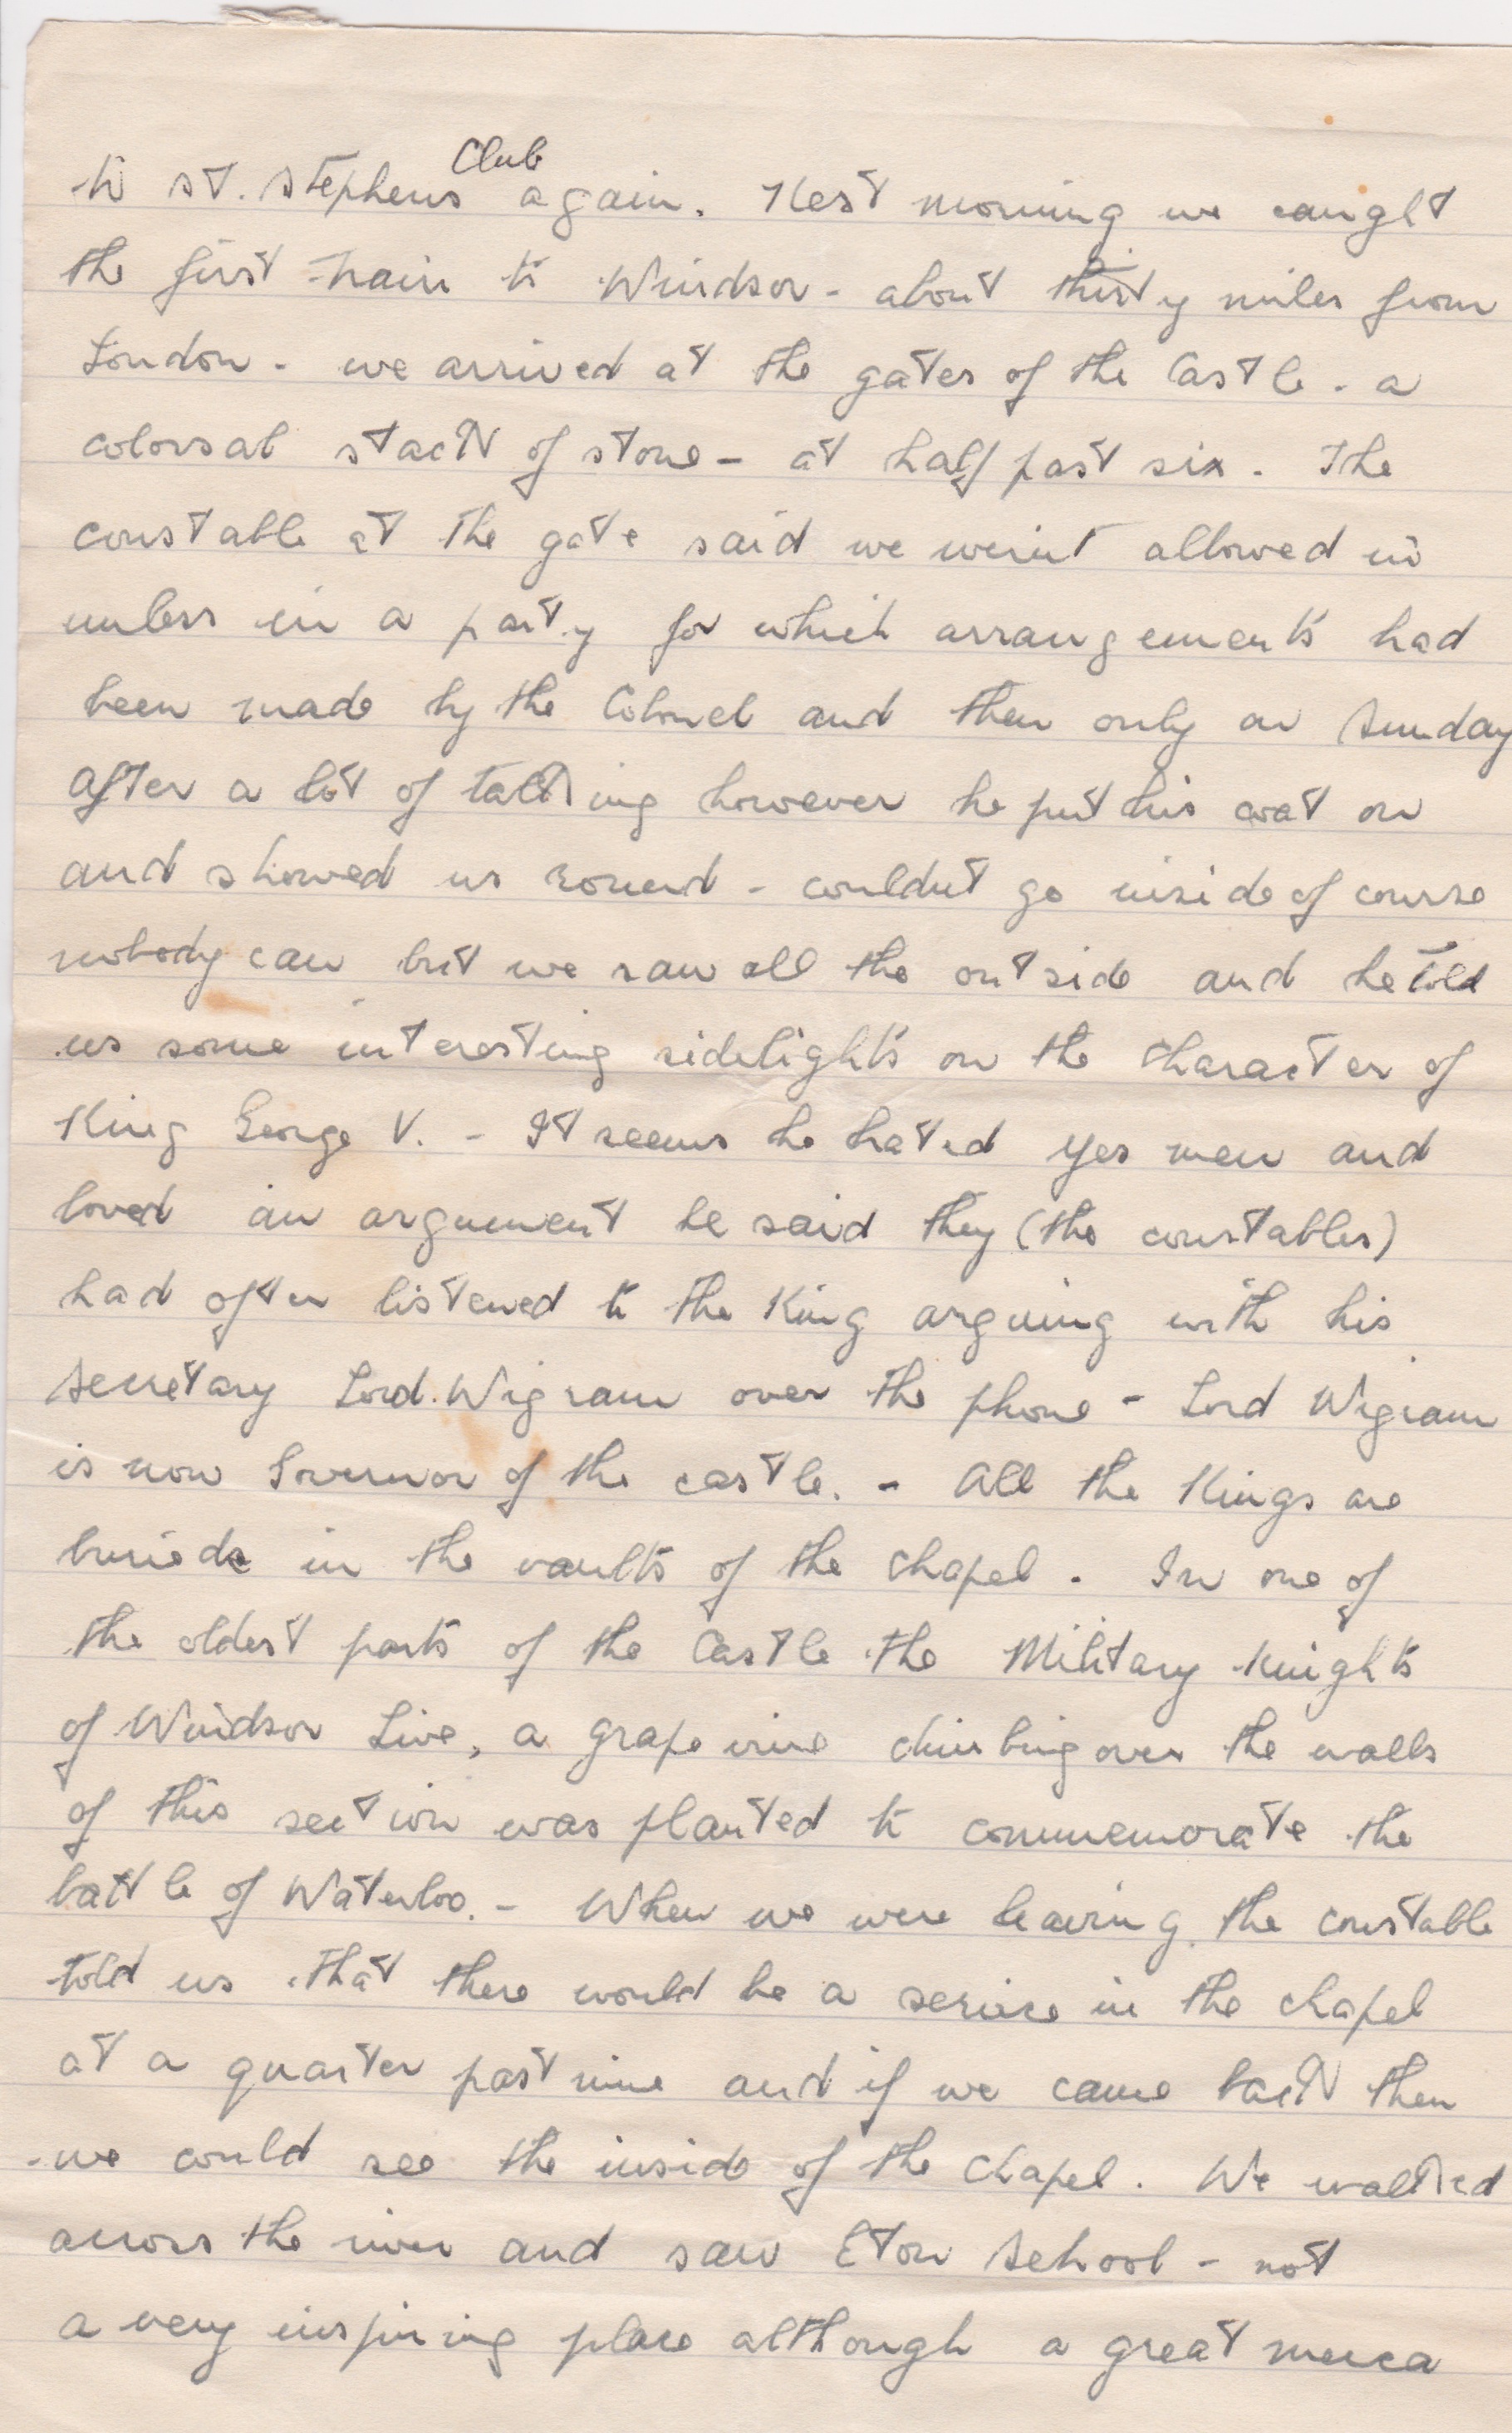 to St. Stephens Club again. Next morning we caught
the first train to Windsor - about thirty miles from
London - we arrived at the gates of the Castle - a
colossal stack of stone - at half past six. The
constable at the gate said we weren't allowed in
unless in a party for which arrangements had
been made by the Colonel and then only on Sunday
After a lot of talking however he put his coat on
and showed us round - couldn't go inside of course
nobody can but we saw all the outside and he told
us some interesting sidelights on the character of
King George V. - It seems he hated yes men and
loved an argument he said they (the constables)
had often listened to the King arguing with his
secretary Lord Wigram over the phone - Lord Wigram
is now Governor of the castle. - All the Kings are
buried in the vaults of the chapel. In one of
the oldest parts of the Castle the Military Knights
of Windsor Live, a grape vine climbing over the walls
of this section was planted to commemorate the
battle of Waterloo. - When we were leaving the constable
told us that there would be a service in the chapel
at a quarter past nine and if we came back then
we could see the inside of the chapel. We walked
across the river and saw Eton School - not
a very inspiring place although a great mecca